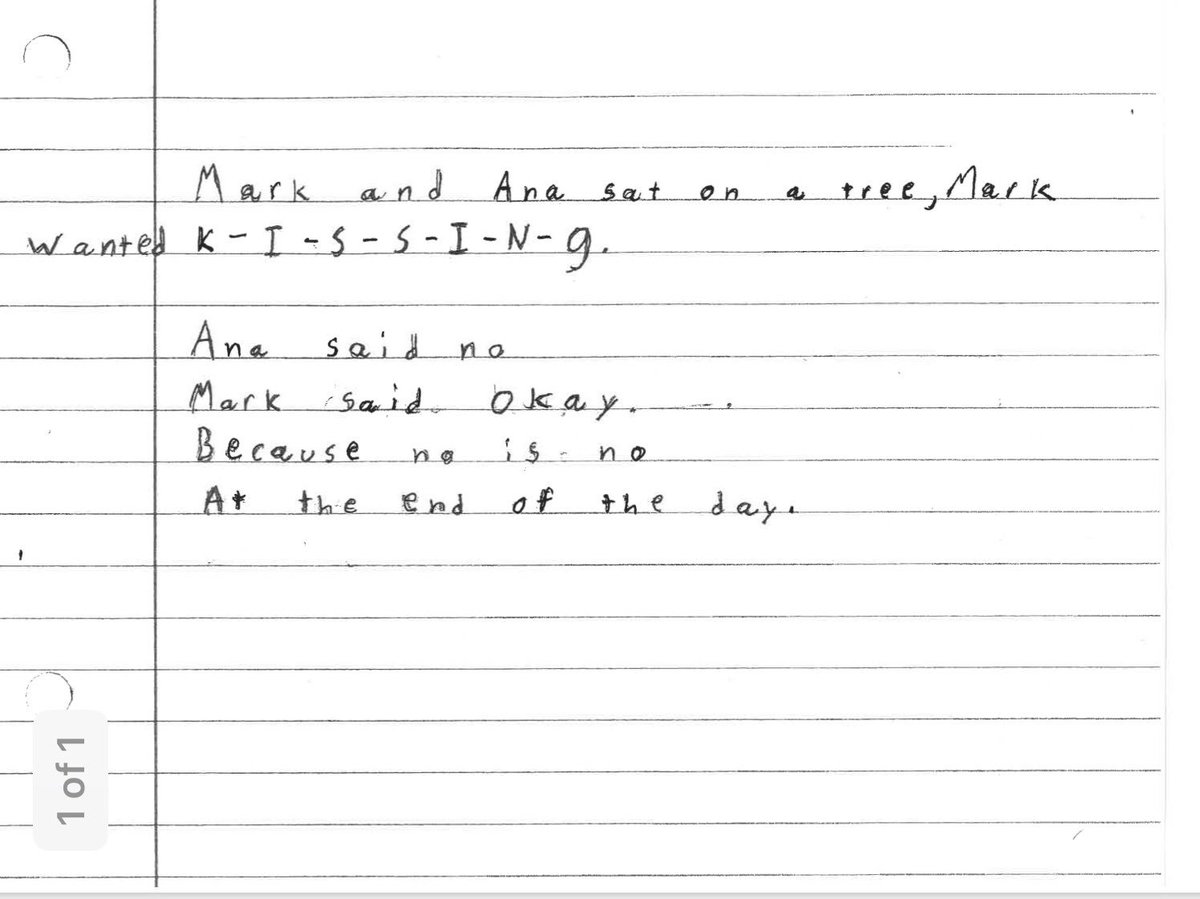 Mark and Ana sat on a tree, Mark
wanted K-I-S-S-I-N-g.
Ana said no
Mark said okay.
Because no is no
At the end of the day.
1 of 1